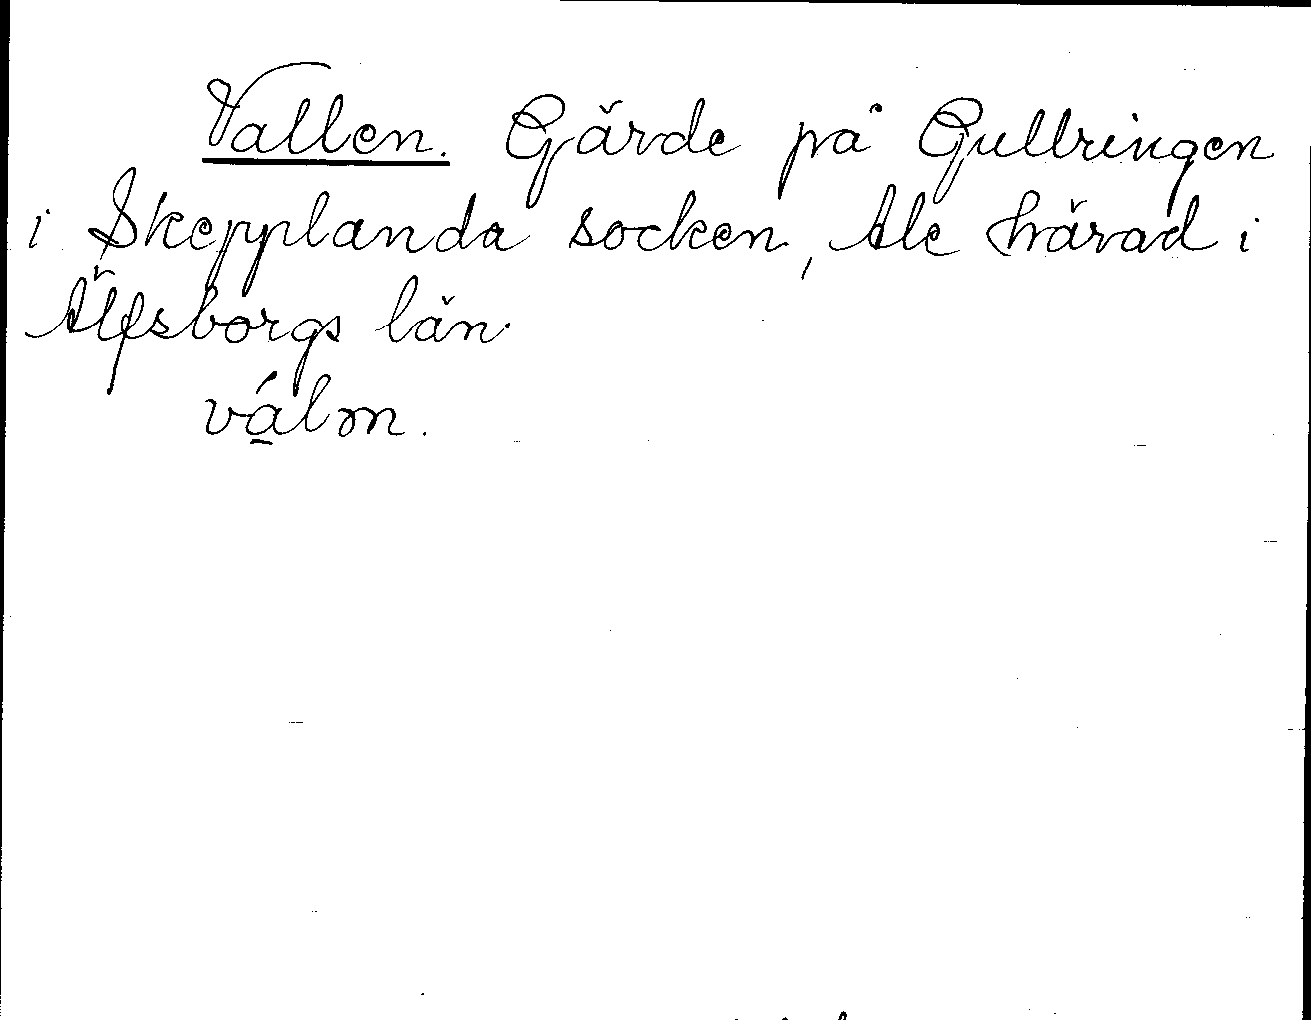 Vallen. Gärde på Gullringen
i Skepplanda socken, Ale härad i
Älfsborgs län.
vá̱lm.